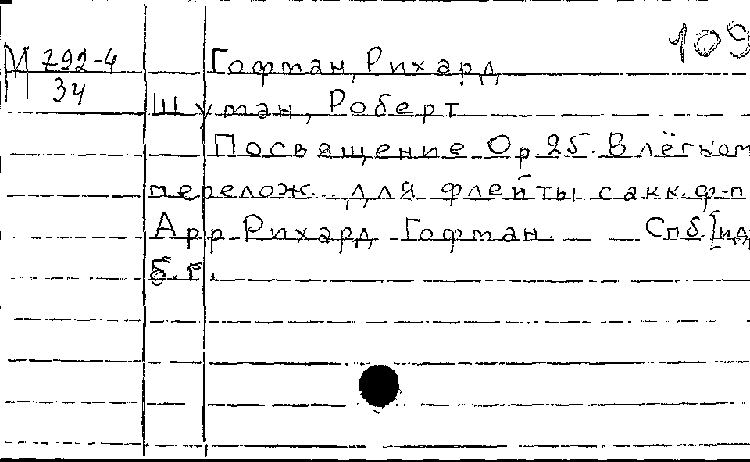 109
М 792-4 Гофман, Рихард
34
Шуман, Роберт
Посвящение Op 25. В лёгком
перелож. для флейты с акк. ф-п
Арр Рихард Гофман Спб. [ид
б. г.